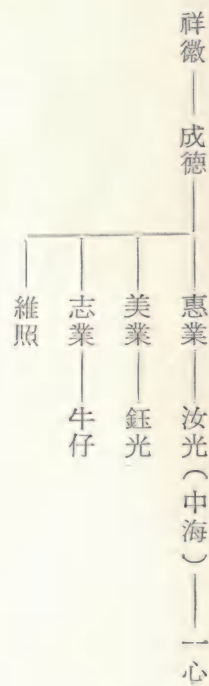 祥徽——成德——惠業——汝光（中海）——一心
美業——鈺光
志業——牛仔
維照